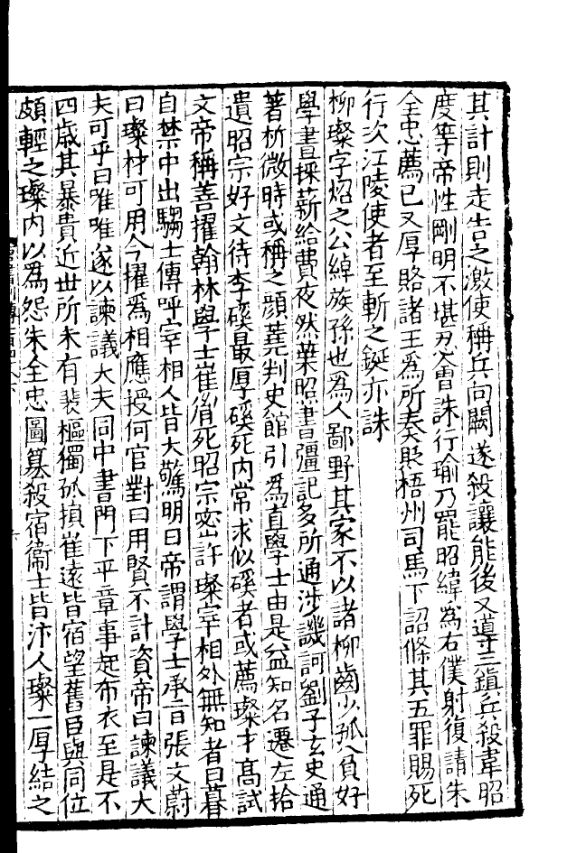 其計則走告之激使稱兵向闕遂殺讓能後又導三鎮兵殺韋昭
度等帝性剛明不堪忍會誅行瑜乃罷昭緯為右僕射復請朱
全忠薦己又厚賂諸王為所奏貶梧州司馬下詔條其五罪賜死
行次江陵使者至斬之鋋亦誅
柳璨字炤之公綽族孫也為人鄙野其家不以諸柳齒少孤貧好
學晝採薪給費夜然葉照書彊記多所通涉譏訶劉子玄史通
著析微時或稱之顏蕘判史館引為直學士由是益知名遷左拾
遺昭宗好文待李磎最厚磎死內常求似磎者或薦璨才高試
文帝稱善擢翰林學士崔胤死昭宗密許璨宰相外無知者日暮
自禁中出騶士傳呼宰相人皆大驚明日帝謂學士承旨張文蔚
曰璨材可用今擢為相應授何官對曰用賢不計資帝曰諫議大
夫可乎曰唯唯遂以諫議大夫同中書門下平章事起布衣至是不
四歲其暴貴近世所未有裴樞獨孤損崔遠皆宿望舊臣與同位
頗輕之璨內以為怨朱全忠圖篡殺宿衛士皆汴人璨一厚結之